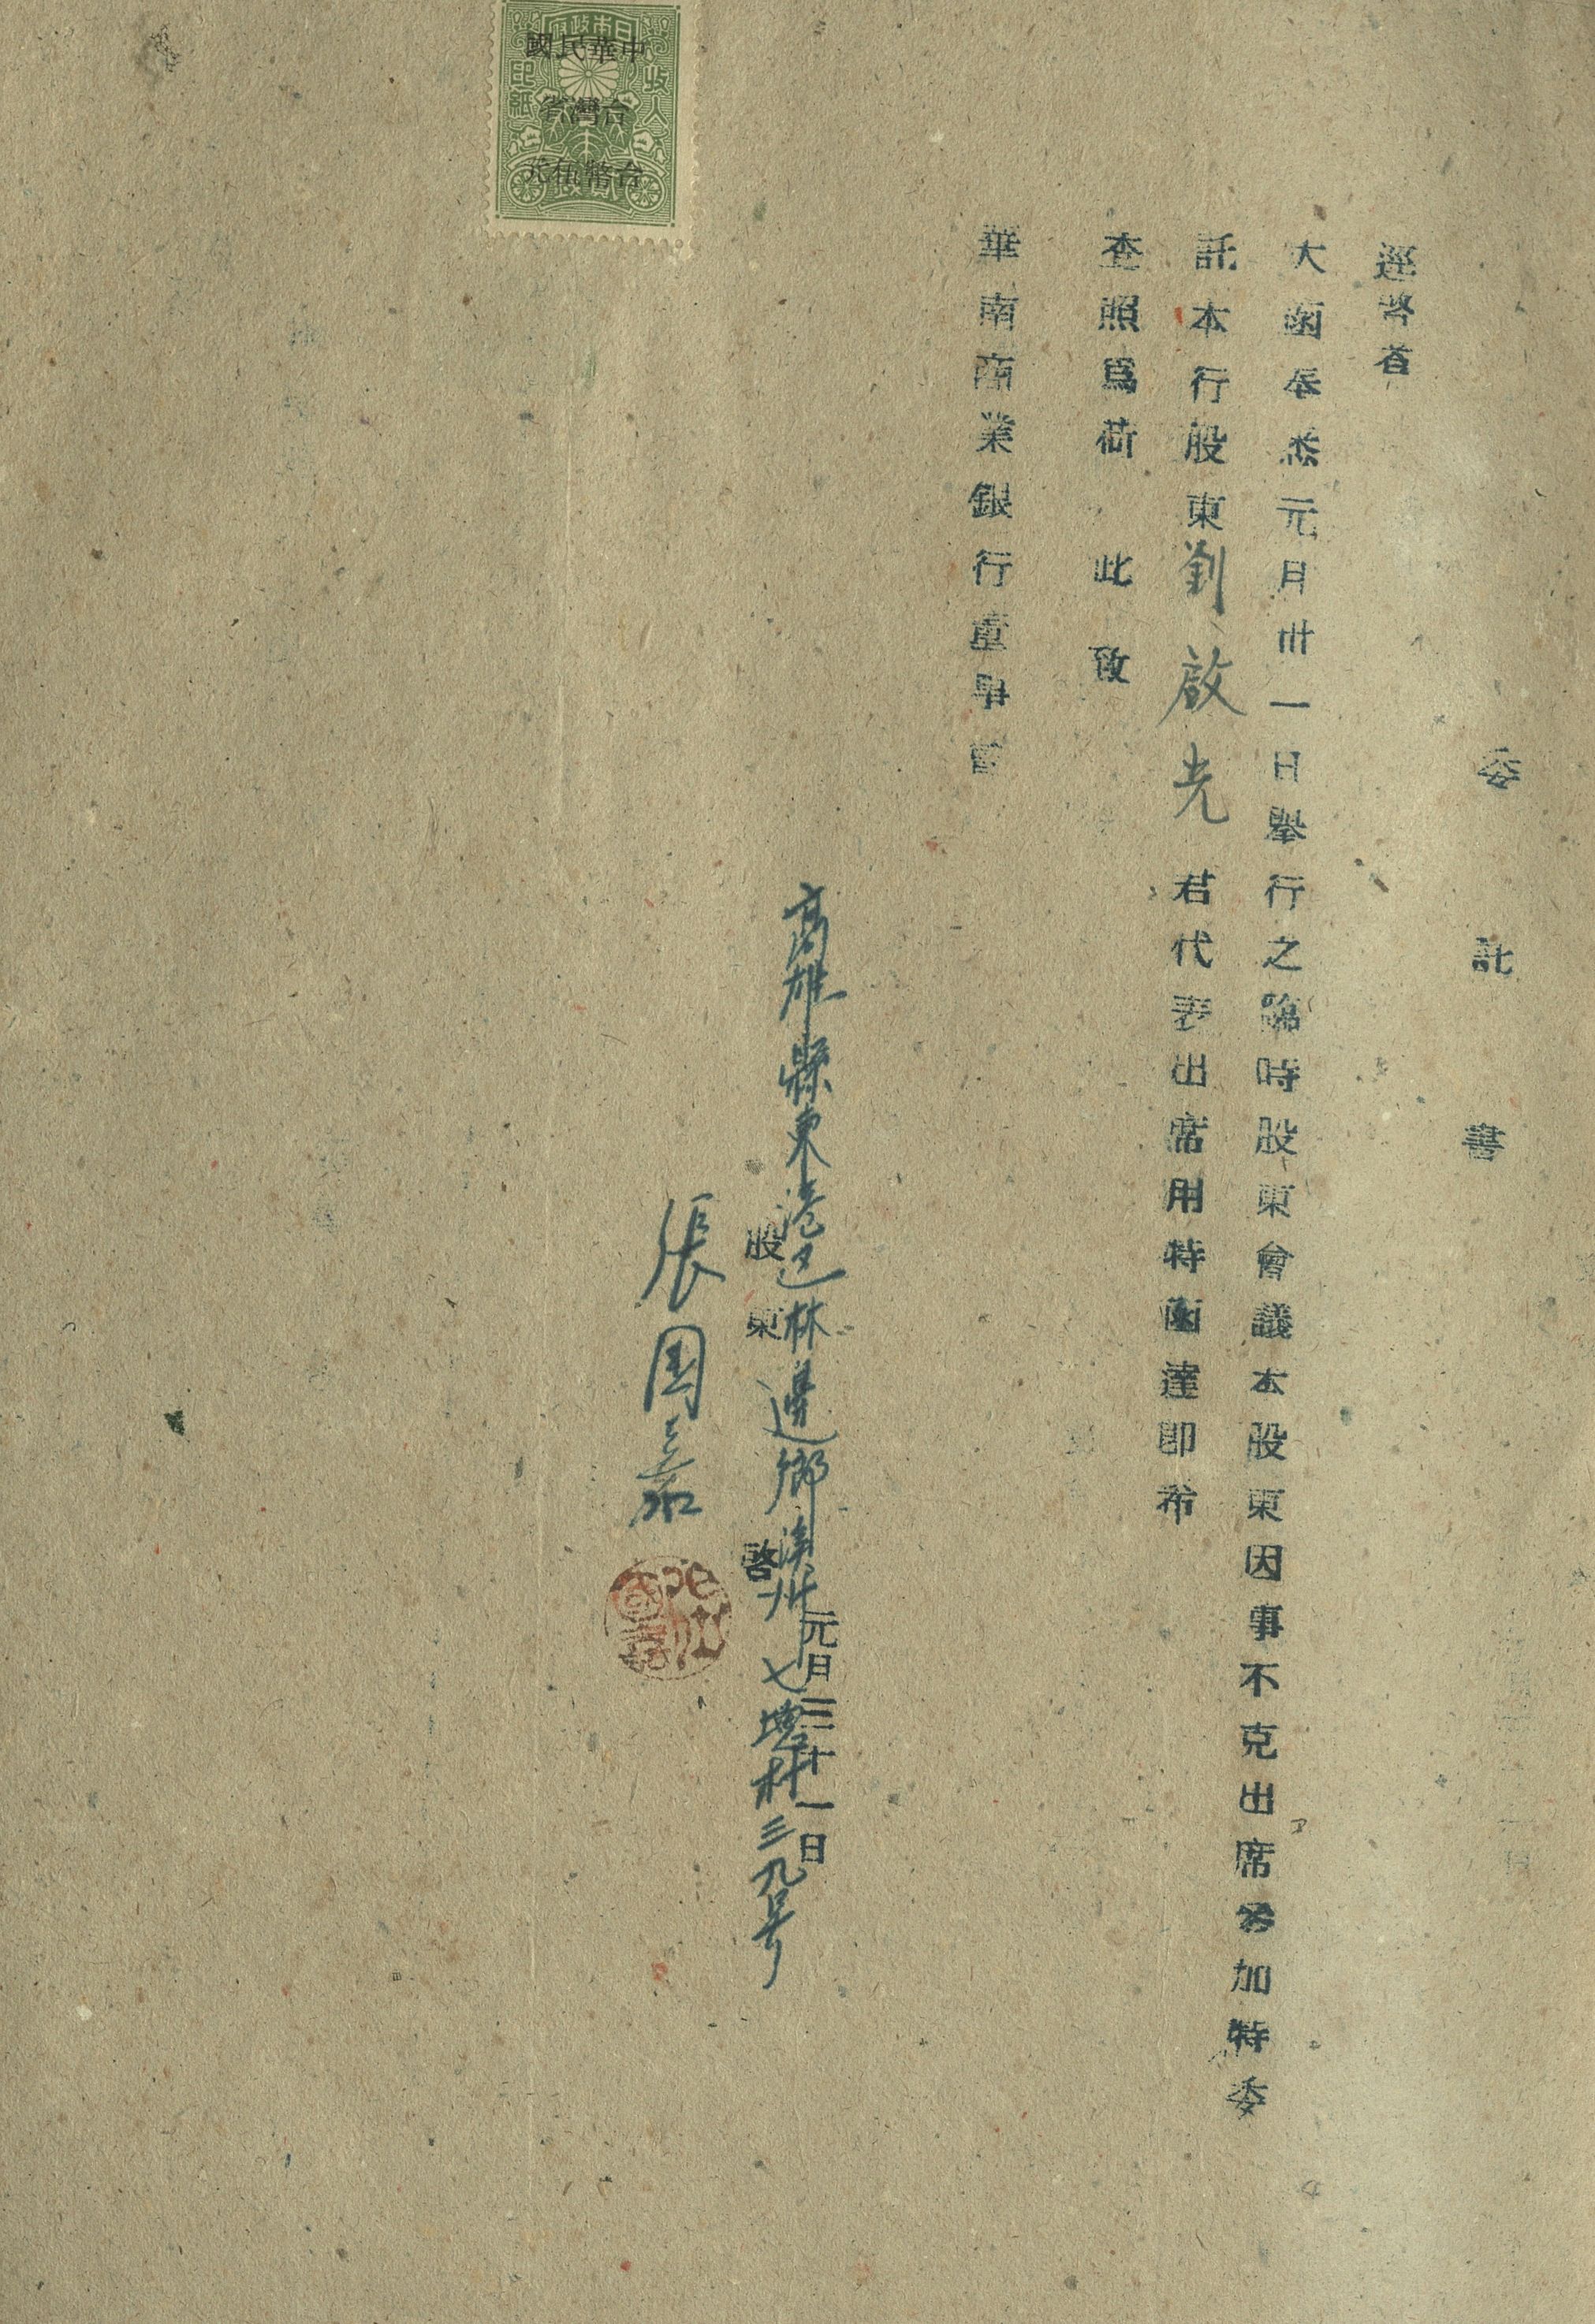 委託書
逕啓者
大函奉悉元月卅一日舉行之臨時股東會議本股東因事不克出席參加特委
託本行股東劉啟光君代表出席用特函達即希
查照爲荷　此致
華南商業銀行董事會
元月三十一日
高雄縣東港区林邊鄉溪州七塊村三九号
股東　啓
張國嘉
日本政府
收入
印紙
貳
中華民國
台灣省
台幣伍元